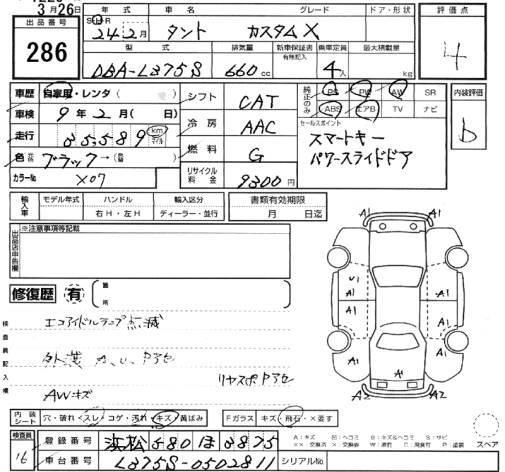 3月26日
出品番号
286
年式 車名 グレード ドア・形状
24年2月 タント カスタムX
型式 排気量 新車保証書 有無記入 乗車定員 最大積載量
DBA-L375S 660cc 4人 kg
評価点
4
車歴 自家用・レンタ( )
車検 9年2月( 日)
走行 km マイル
色 ブラック→(
カラーNo X07
シフト CAT
冷房 AAC
燃料 G
リサイクル料金 9300円
純正のみ PS PW AW SR
ABS エアB TV ナビ
セールスポイント
スマートキー
パワースライドドア
内装評価
b
輸入車 モデル年式 ハンドル 輸入区分
右H・左H ディーラー・並行
書類有効期限
月 日迄
出品店申告欄 ※注意事項等記載
修復歴 有 箇所
検査員記入欄
エコアイドルランプ点滅
外装 A、U、Pアセ
リヤスポPアセ
AWキズ
A1 A1
U1 A1 A1
A1 A1
A1
A2 A2
内装シート 穴・破れ スレ コゲ・汚れ キズ 黄ばみ
Fガラス キズ 飛石・×要す
スペア
検査員 16
登録番号 浜松580
車台番号 L375S-0502811
シリアルNo
A:キズ U:ヘコミ B:キズ&ヘコミ S:サビ